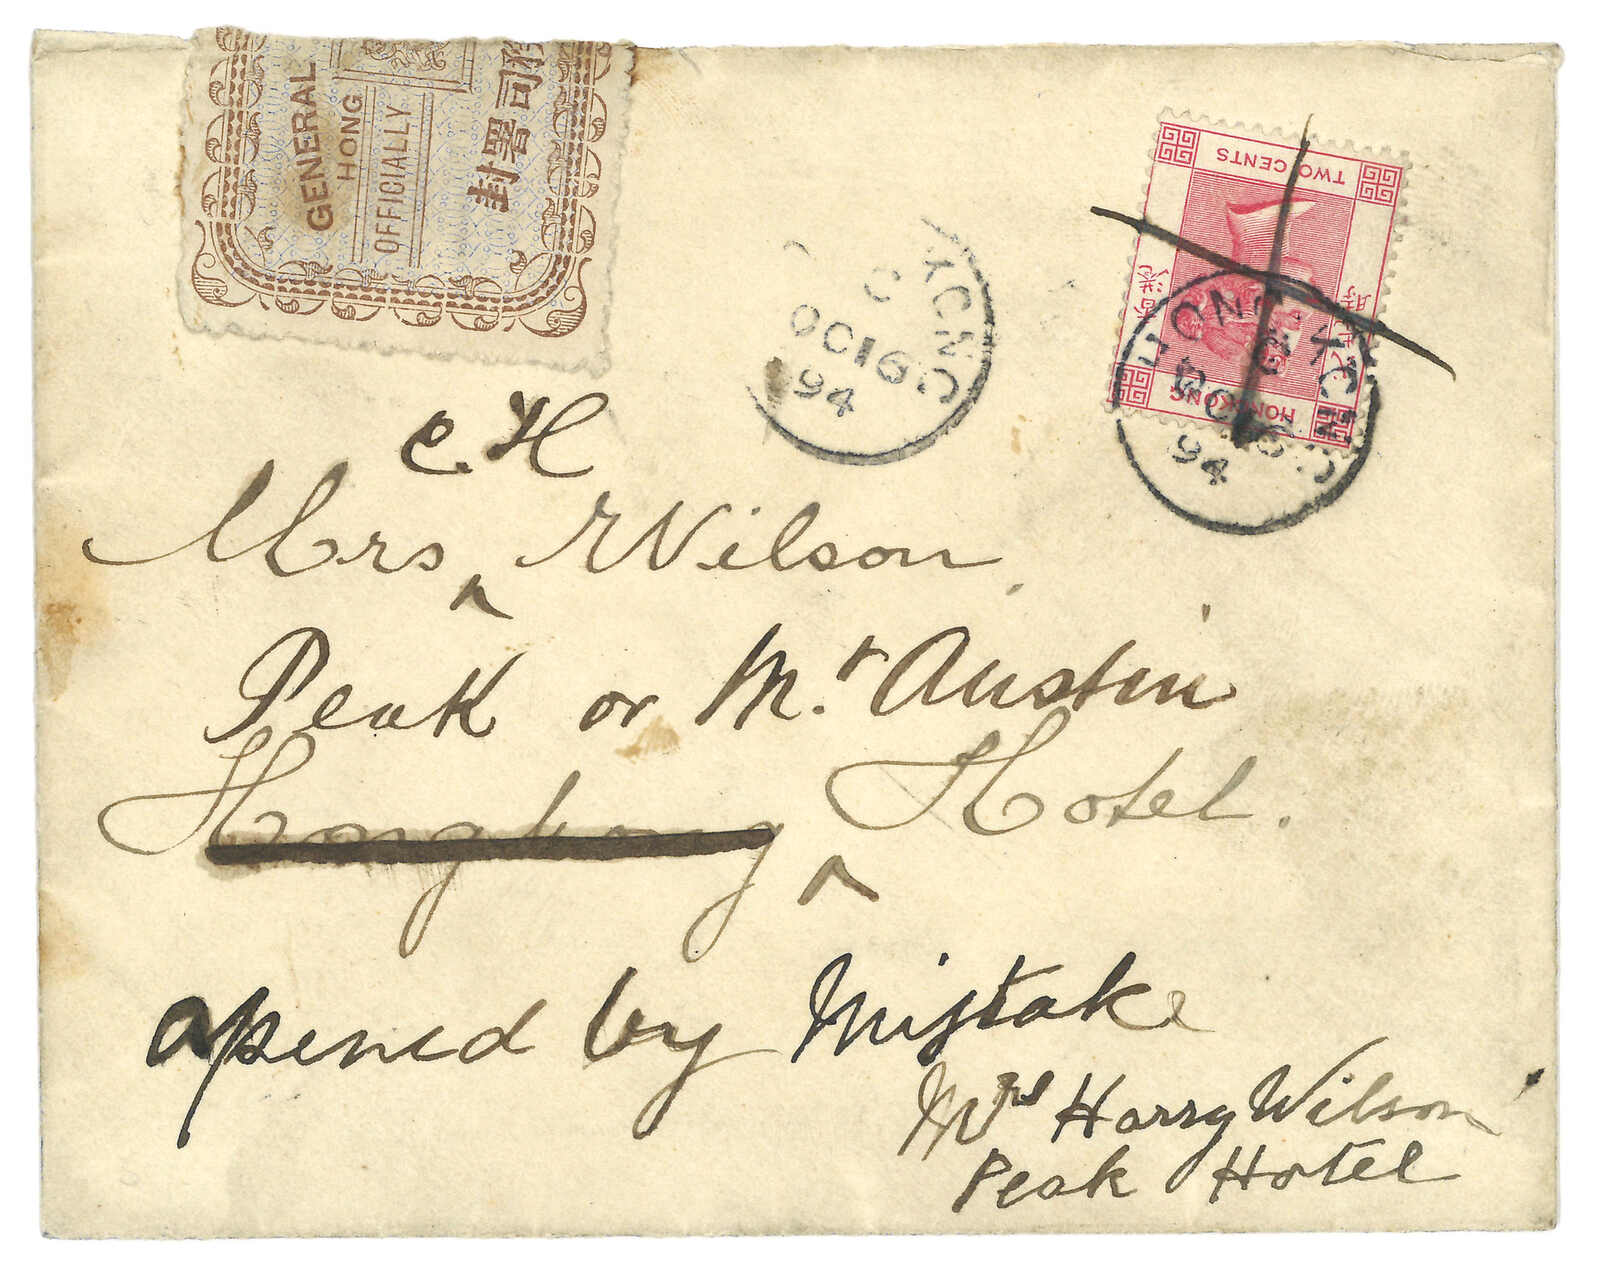 GENERAL
HONG
OFFICIALLY
封署司
TWO CENTS
HONGKONG
香港
HONG KONG
C
OC 16
94
HONG KONG
C
OC 16
94
C. H
Mrs ^ Wilson.
Peak or Mt Austin
Hongkong ^ Hotel.
opened by Mistake
Mrs Harry Wilson
Peak Hotel